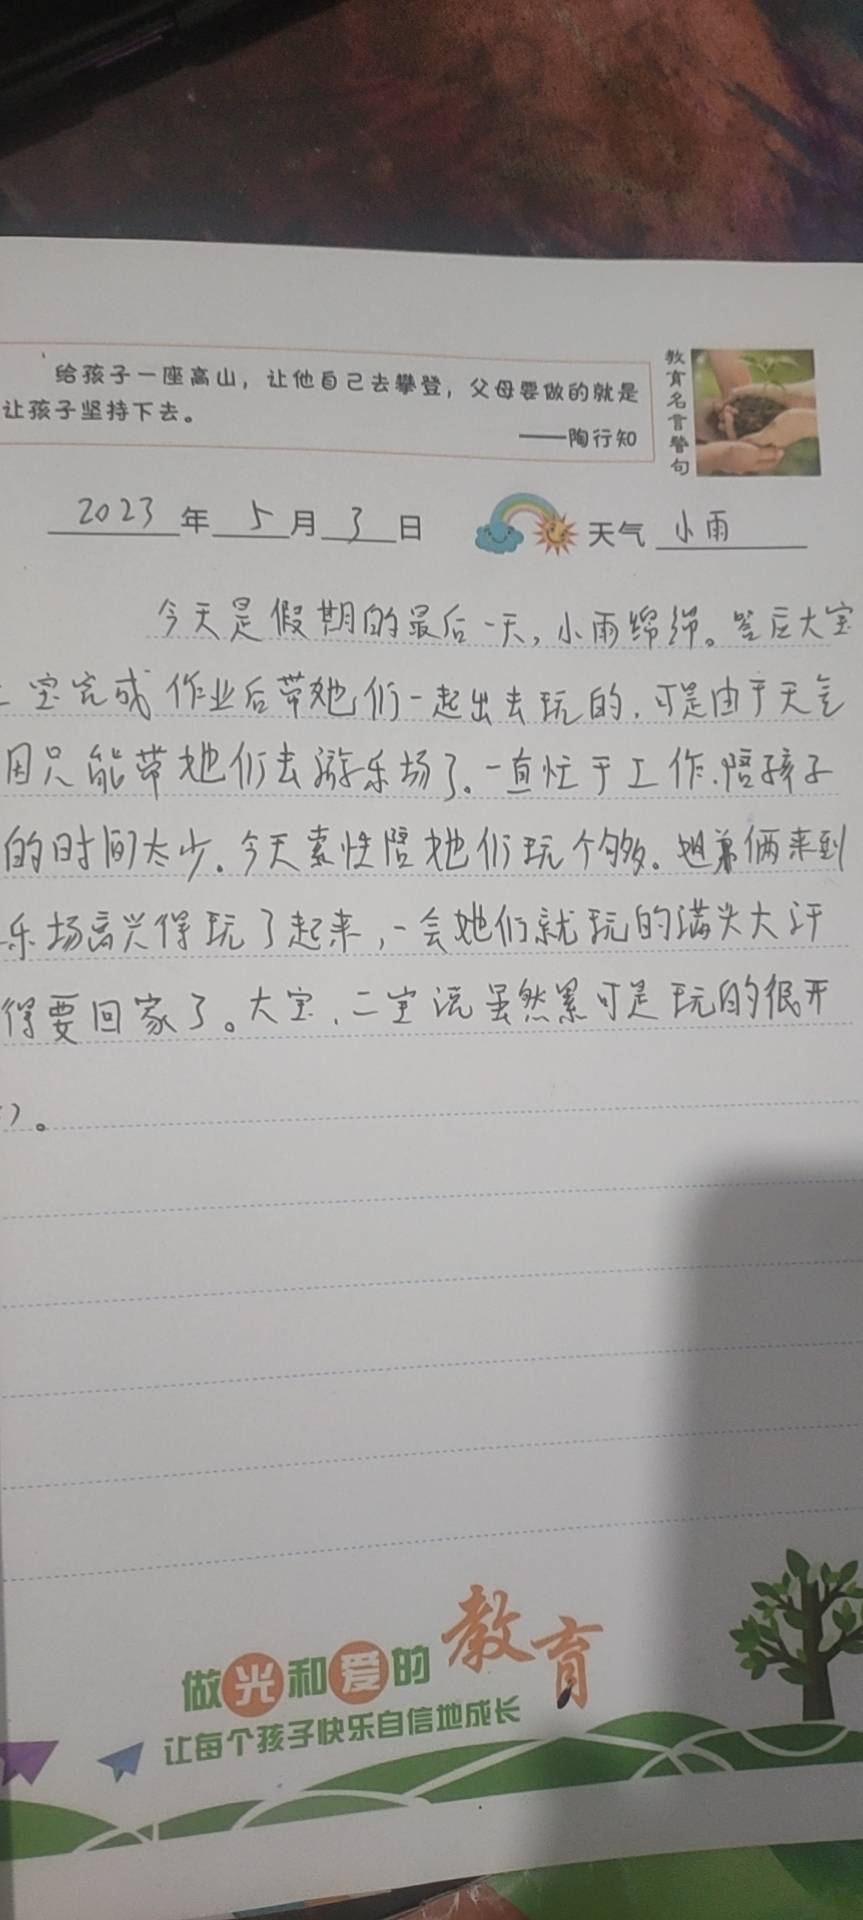 给孩子一座高山，让他自己去攀登，父母要做的就是
让孩子坚持下去。
——陶行知
教育名言警句
2023年5月3日 天气 小雨
今天是假期的最后一天，小雨绵绵。答应大宝
宝完成作业后带她们一起出去玩的，可是由于天气
因只能带她们去游乐场了。一直忙于工作，陪孩子
的时间太少。今天索性陪她们玩个够。姐弟俩来到
乐场高兴得玩了起来，一会她们就玩的满头大汗
得要回家了。大宝、二宝说虽然累可是玩的很开
。
做光和爱的教育
让每个孩子快乐自信地成长